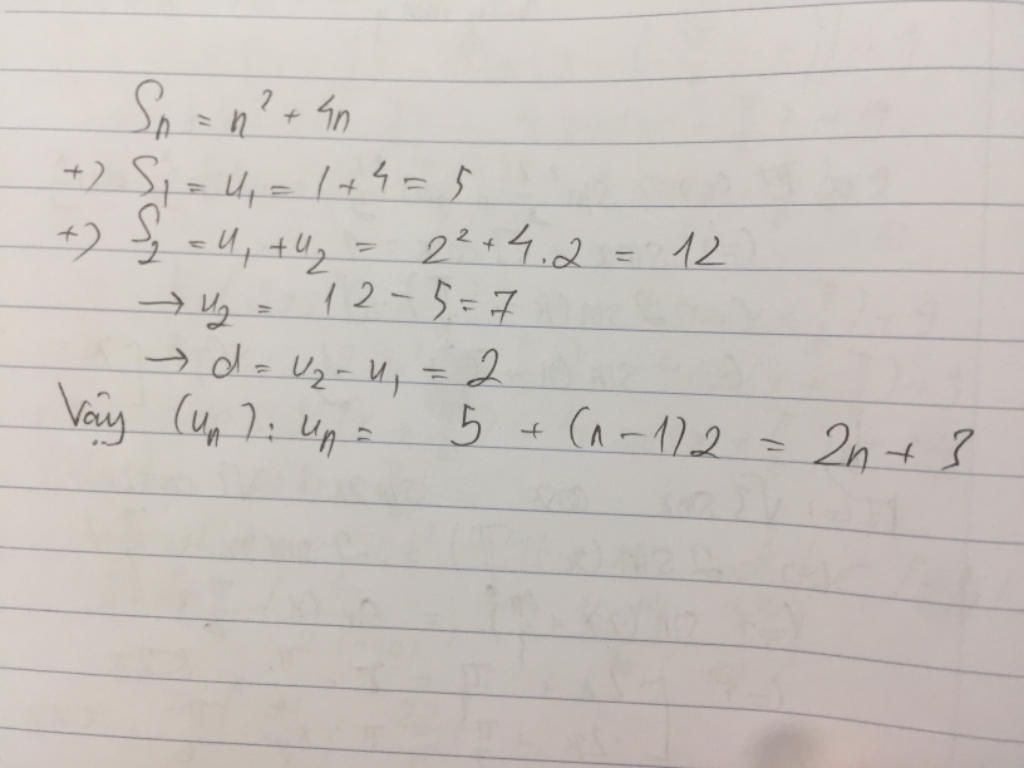 Sₙ = n² + 4n
+) S₁ = u₁ = 1 + 4 = 5
+) S₂ = u₁ + u₂ = 2² + 4.2 = 12
→ u₂ = 12 - 5 = 7
→ d = u₂ - u₁ = 2
Vậy (uₙ): uₙ = 5 + (n - 1)2 = 2n + 3